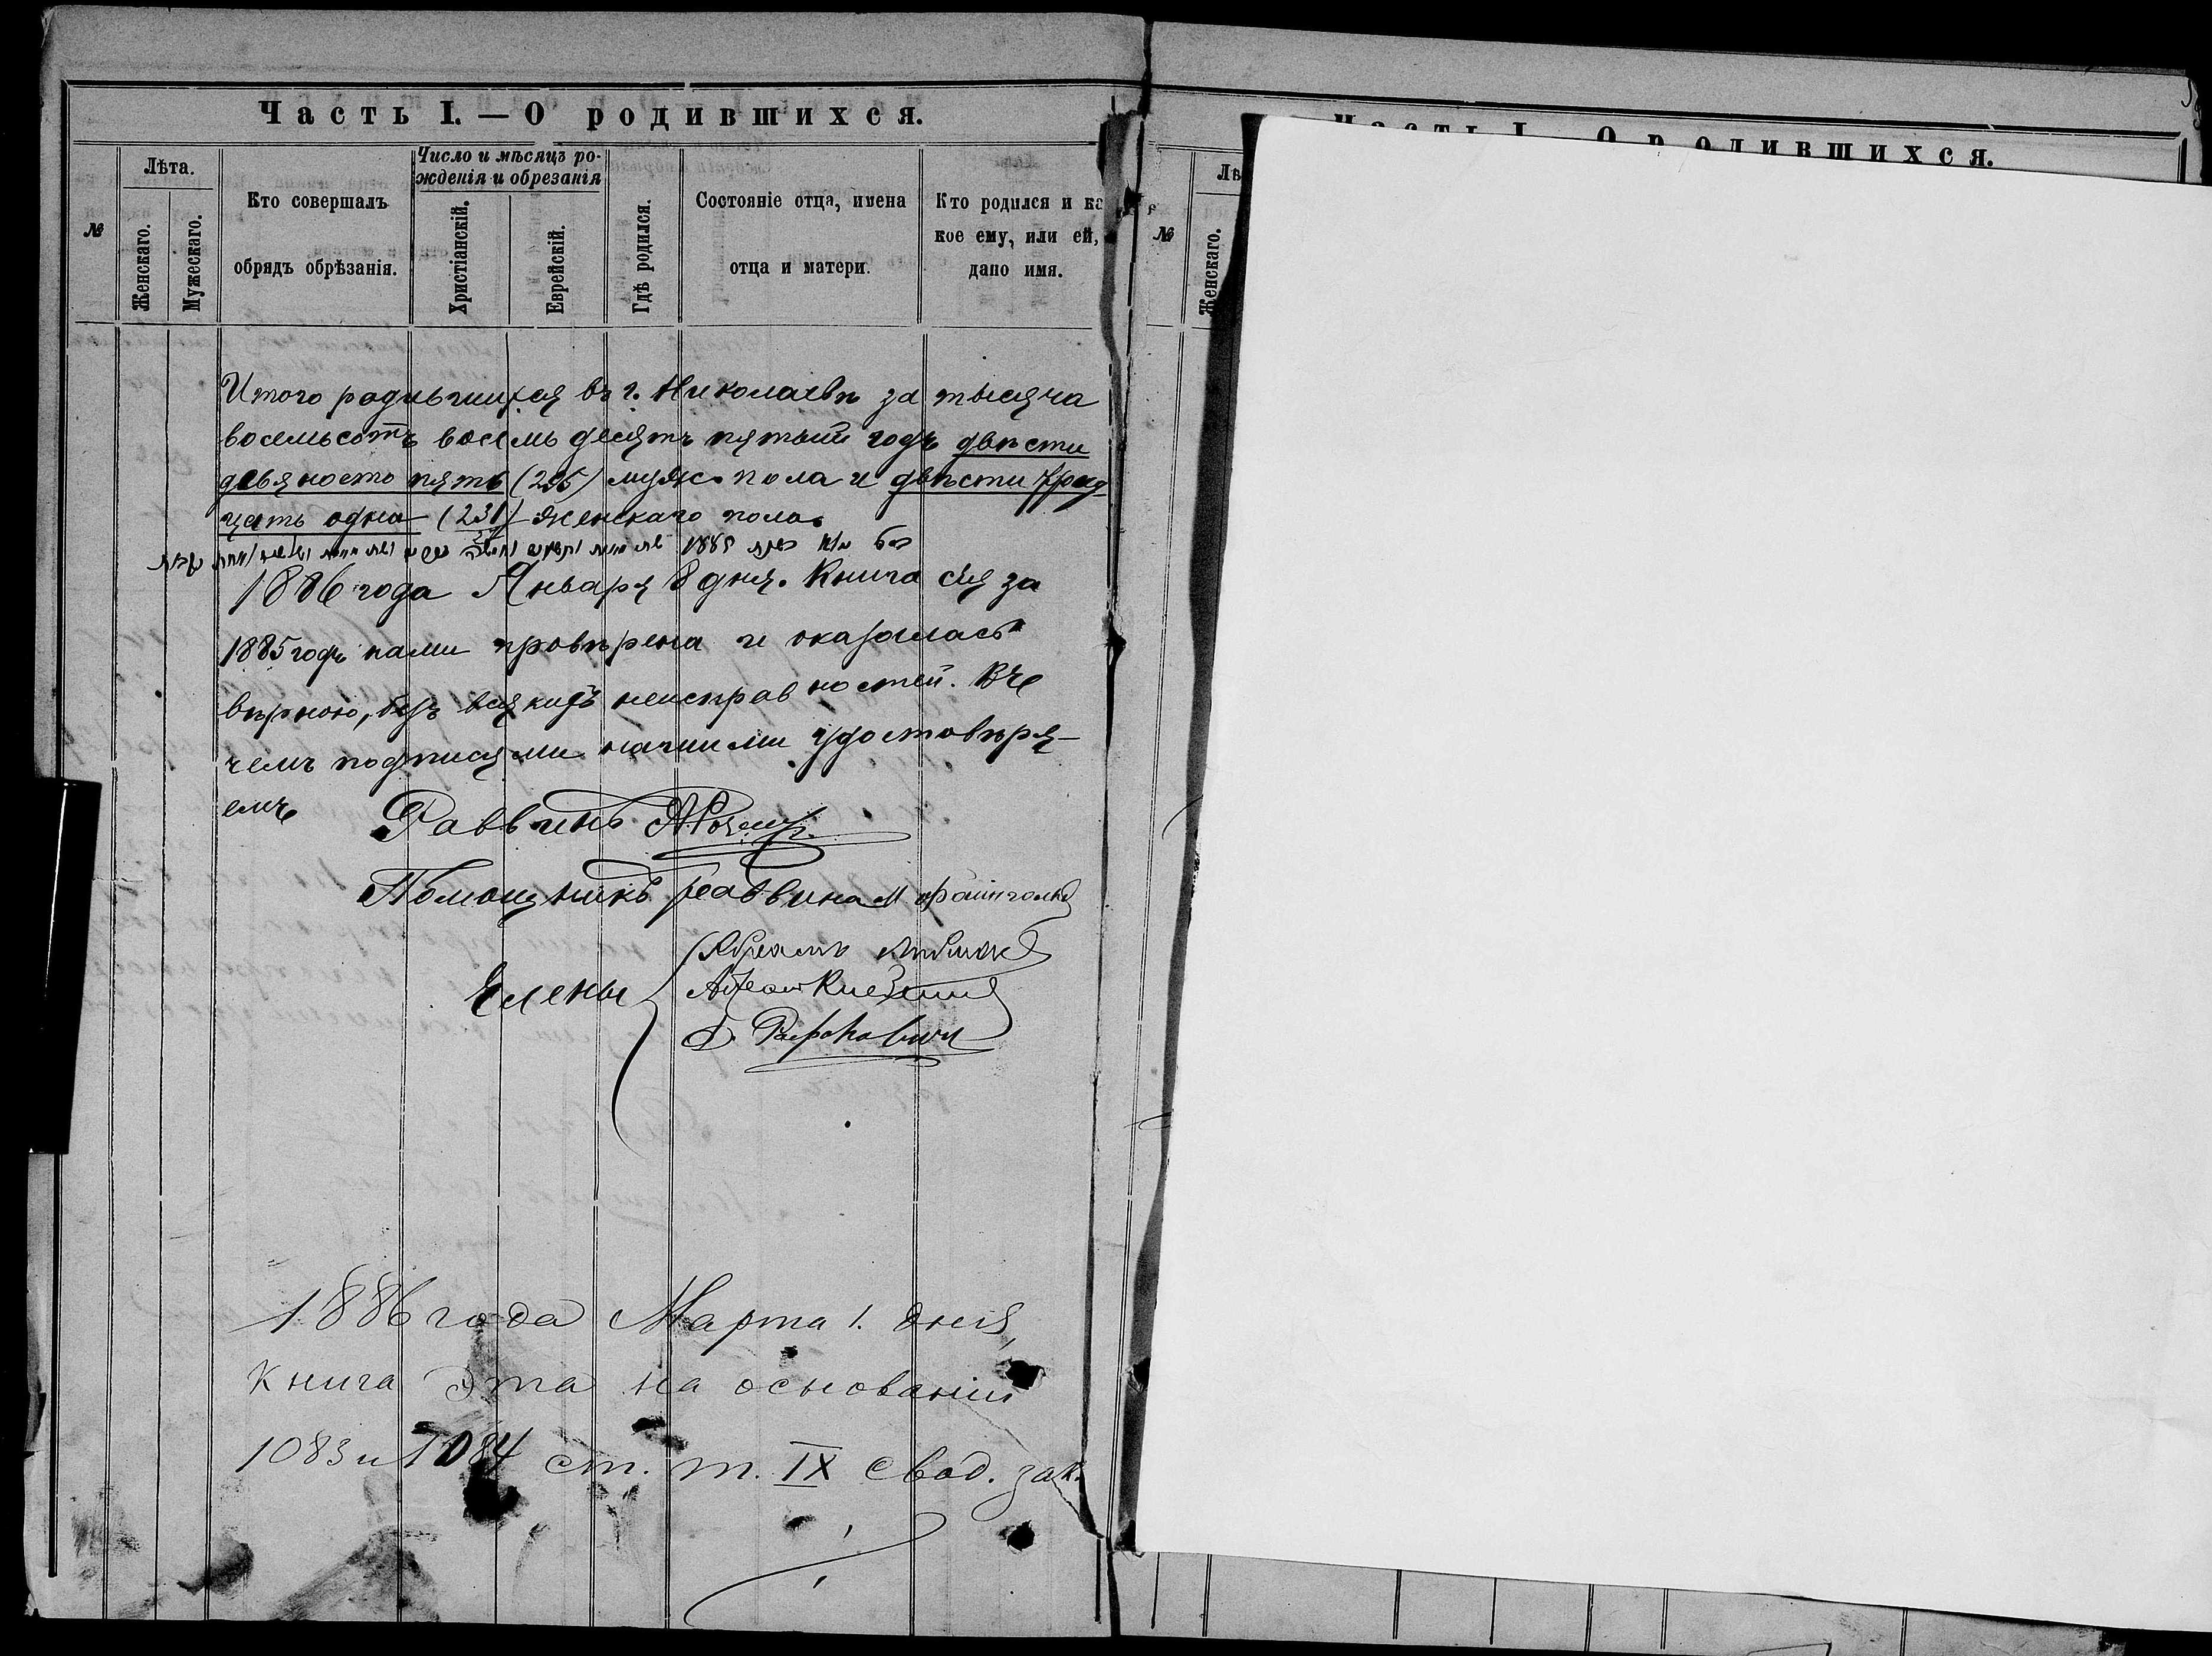 Часть I. — О родившихся.
№
Лѣта.
Женскаго.
Мужескаго.
Кто совершалъ
обрядъ обрѣзанія.
Число и мѣсяцъ ро-
жденія и обрезанія
Христіанскій.
Еврейскій.
Гдѣ родился.
Состояніе отца, имена
отца и матери.
Кто родился и ка
кое ему, или ей,
дано имя.
Итого родившихся въ г. Николаевѣ за тысяча
восемьсотъ восемь десятъ пятый годъ двѣсти
девяносто пять (295) муж. пола и двѣсти трид-
цать одна (231) женскаго пола.
1885
1886 года Января 8 дня. Книга сія за
1885 годъ нами провѣрена и оказалась
вѣрною, безъ всякихъ неисправностей. Въ
чемъ подписями нашими удостовѣря-
емъ
Раввинъ
Помощникъ раввина М Файнгольд
Члены
Абрамъ
Д. Рафаловичъ
1886 года Марта 1. дня,
книга эта на основаніи
1083 и 1084 ст. т. IX Свод. зак.
Часть I. — О родившихся.
№
Лѣ
Женскаго.